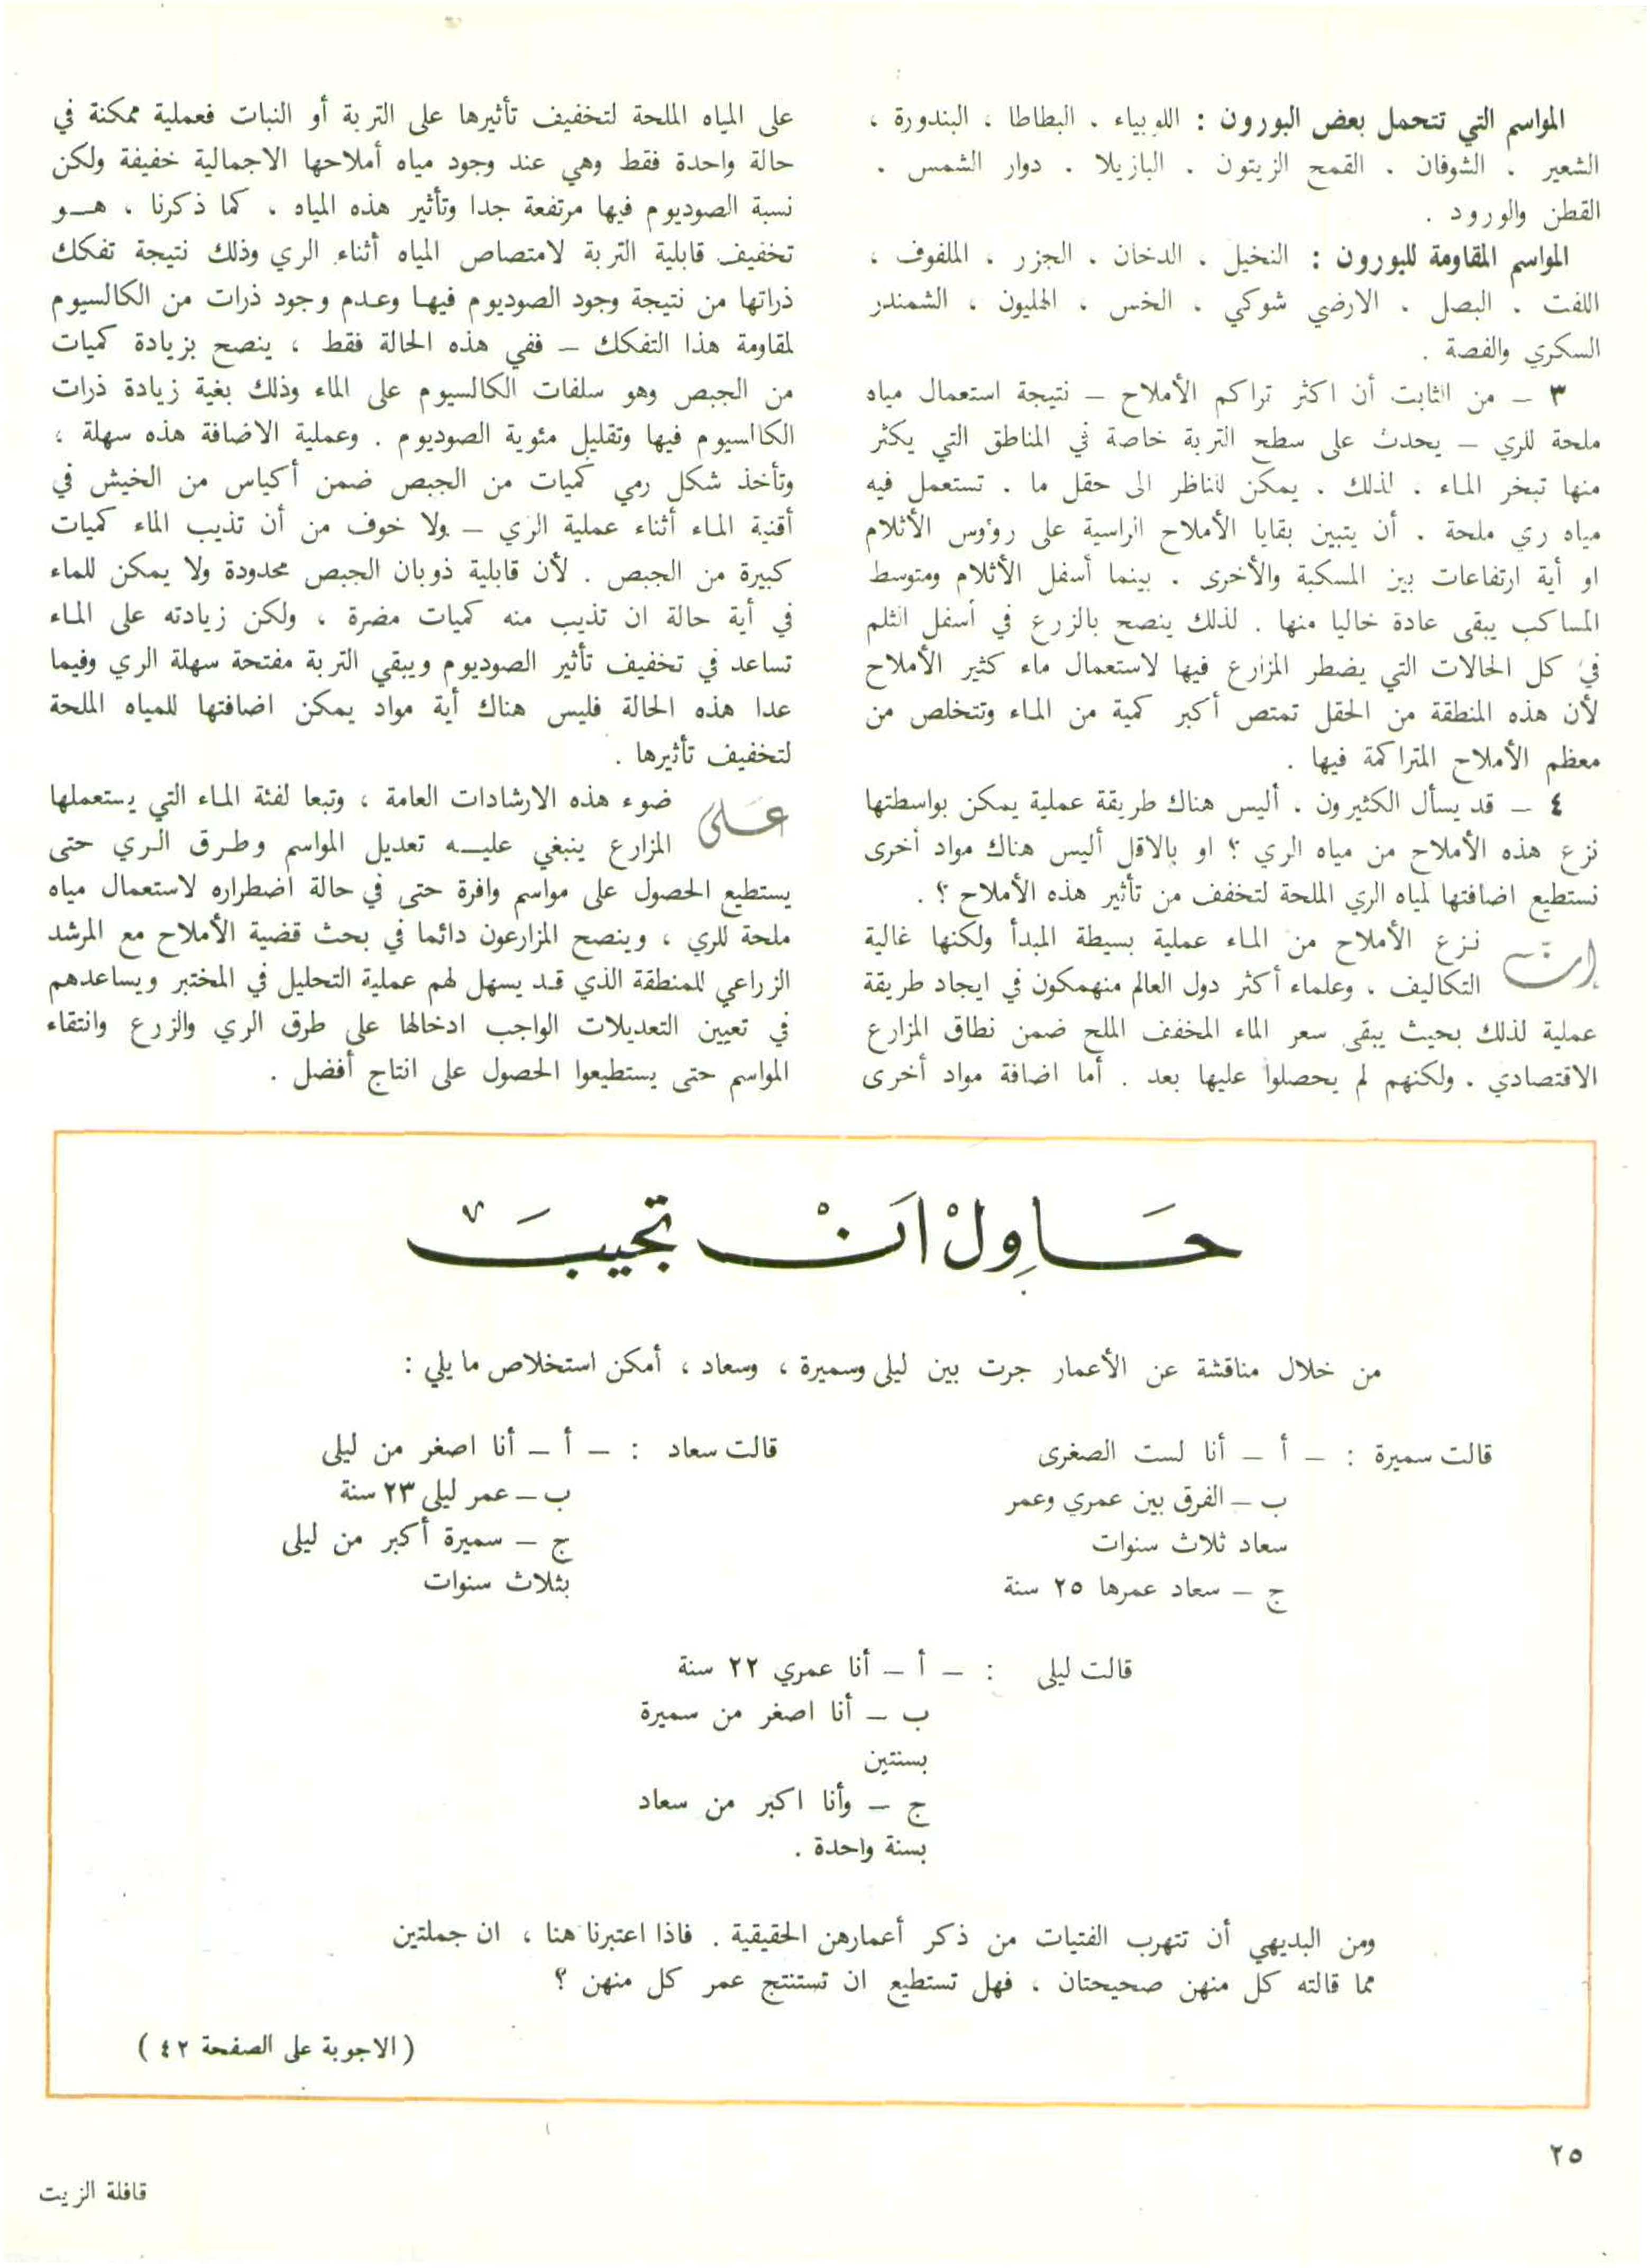 المواسم التي تتحمل بعض البورون : اللوبياء ، البطاطا ، البندورة ،
الشعير ، الشوفان ، القمح الزيتون ، البازيلا ، دوار الشمس ،
القطن والورود .
المواسم المقاومة للبورون : النخيل ، الدخان ، الجزر ، الملفوف ،
اللفت ، البصل ، الارضي شوكي ، الخس ، الهليون ، الشمندر
السكري والفصة .
٣ – من الثابت أن اكثر تراكم الأملاح – نتيجة استعمال مياه
ملحة للري – يحدث على سطح التربة خاصة في المناطق التي يكثر
منها تبخر الماء . لذلك ، يمكن للناظر الى حقل ما ، تستعمل فيه
مياه ري ملحة ، أن يتبين بقايا الأملاح الراسية على رؤوس الأثلام
او أية ارتفاعات بين المسكبة والأخرى ، بينما أسفل الأثلام ومتوسط
المساكب يبقى عادة خاليا منها . لذلك ينصح بالزرع في أسفل الثلم
في كل الحالات التي يضطر المزارع فيها لاستعمال ماء كثير الأملاح
لأن هذه المنطقة من الحقل تمتص أكبر كمية من الماء وتتخلص من
معظم الأملاح المتراكمة فيها .
٤ – قد يسأل الكثيرون ، أليس هناك طريقة عملية يمكن بواسطتها
نزع هذه الأملاح من مياه الري ؟ او بالاقل أليس هناك مواد أخرى
نستطيع اضافتها لمياه الري الملحة لتخفف من تأثير هذه الأملاح ؟ .
إن نزع الأملاح من الماء عملية بسيطة المبدأ ولكنها غالية
التكاليف ، وعلماء أكثر دول العالم منهمكون في ايجاد طريقة
عملية لذلك بحيث يبقى سعر الماء المخفف الملح ضمن نطاق المزارع
الاقتصادي . ولكنهم لم يحصلوا عليها بعد . أما اضافة مواد أخرى
على المياه الملحة لتخفيف تأثيرها على التربة أو النبات فعملية ممكنة في
حالة واحدة فقط وهي عند وجود مياه أملاحها الاجمالية خفيفة ولكن
نسبة الصوديوم فيها مرتفعة جدا وتأثير هذه المياه ، كما ذكرنا ، هــو
تخفيف قابلية التربة لامتصاص المياه أثناء الري وذلك نتيجة تفكك
ذراتها من نتيجة وجود الصوديوم فيها وعدم وجود ذرات من الكالسيوم
لمقاومة هذا التفكك – ففي هذه الحالة فقط ، ينصح بزيادة كميات
من الجبص وهو سلفات الكالسيوم على الماء وذلك بغية زيادة ذرات
الكالسيوم فيها وتقليل مئوية الصوديوم . وعملية الاضافة هذه سهلة ،
وتأخذ شكل رمي كميات من الجبص ضمن أكياس من الخيش في
أقنية الماء أثناء عملية الري – ولا خوف من أن تذيب الماء كميات
كبيرة من الجبص . لأن قابلية ذوبان الجبص محدودة ولا يمكن للماء
في أية حالة ان تذيب منه كميات مضرة ، ولكن زيادته على الماء
تساعد في تخفيف تأثير الصوديوم ويبقي التربة مفتحة سهلة الري وفيما
عدا هذه الحالة فليس هناك أية مواد يمكن اضافتها للمياه الملحة
لتخفيف تأثيرها .
عَلى ضوء هذه الارشادات العامة ، وتبعا لفئة الماء التي يستعملها
المزارع ينبغي عليــه تعديل المواسم وطرق الري حتى
يستطيع الحصول على مواسم وافرة حتى في حالة اضطراره لاستعمال مياه
ملحة للري ، وينصح المزارعون دائما في بحث قضية الأملاح مع المرشد
الزراعي للمنطقة الذي قد يسهل لهم عملية التحليل في المختبر ويساعدهم
في تعيين التعديلات الواجب ادخالها على طرق الري والزرع وانتقاء
المواسم حتى يستطيعوا الحصول على انتاج أفضل .
حَاوِلْ اَنْ تجيبَ
من خلال مناقشة عن الأعمار جرت بين ليلى وسميرة ، وسعاد ، أمكن استخلاص ما يلي :
قالت سميرة : – أ – أنا لست الصغرى
ب – الفرق بين عمري وعمر
سعاد ثلاث سنوات
ج – سعاد عمرها ٢٥ سنة
قالت سعاد : – أ – أنا اصغر من ليلى
ب – عمر ليلى ٢٣ سنة
ج – سميرة أكبر من ليلى
بثلاث سنوات
قالت ليلى : – أ – أنا عمري ٢٢ سنة
ب – أنا اصغر من سميرة
بسنتين
ج – وأنا اكبر من سعاد
بسنة واحدة .
ومن البديهي أن تتهرب الفتيات من ذكر أعمارهن الحقيقية . فاذا اعتبرنا هنا ، ان جملتين
مما قالته كل منهن صحيحتان ، فهل تستطيع ان تستنتج عمر كل منهن ؟
( الاجوبة على الصفحة ٤٢ )
٢٥
قافلة الزيت